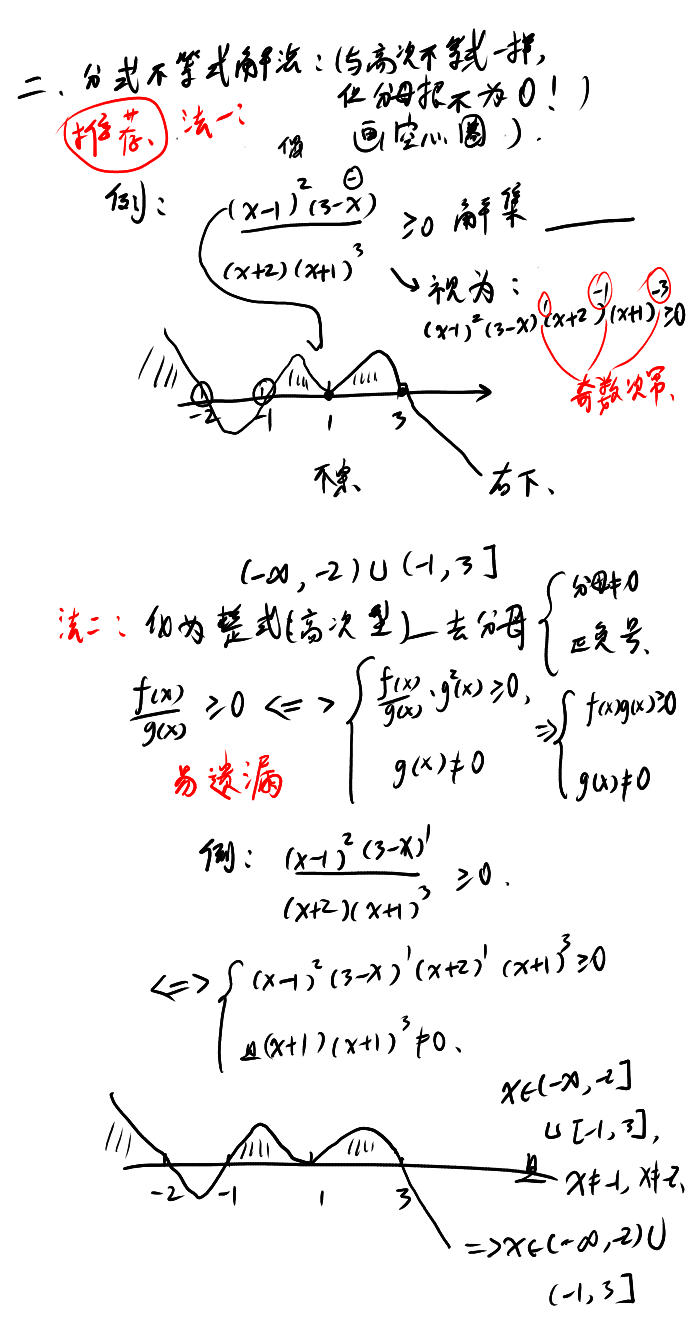 二、分式不等式解法：(与高次不等式一样,
但分母根不为0！)
推荐、法一：
画空心圈).
偶
例：
(x-1)²(3-x)
⊖
≥0 解集
(x+2)(x+1)³
→视为：
(x-1)²(3-x)¹(x+2)⁻¹(x+1)⁻³≥0
奇数次幂、
-2 -1 1 3
不穿、 右下、
(-∞,-2)∪(-1,3]
法二：化为整式(高次型)—去分母{分母≠0
正负号、
f(x)/g(x)≥0 <=> {f(x)/g(x)·g²(x)≥0,
g(x)≠0
=>{f(x)g(x)≥0
g(x)≠0
易遗漏
例：(x-1)²(3-x)¹
≥0.
(x+2)(x+1)³
<=>{(x-1)²(3-x)¹(x+2)¹(x+1)³≥0
且(x+1)(x+1)³≠0、
-2 -1 1 3
x∈(-∞,-2]
∪[-1,3],
且 x≠-1,x≠-2、
=>x∈(-∞,-2)∪
(-1,3]